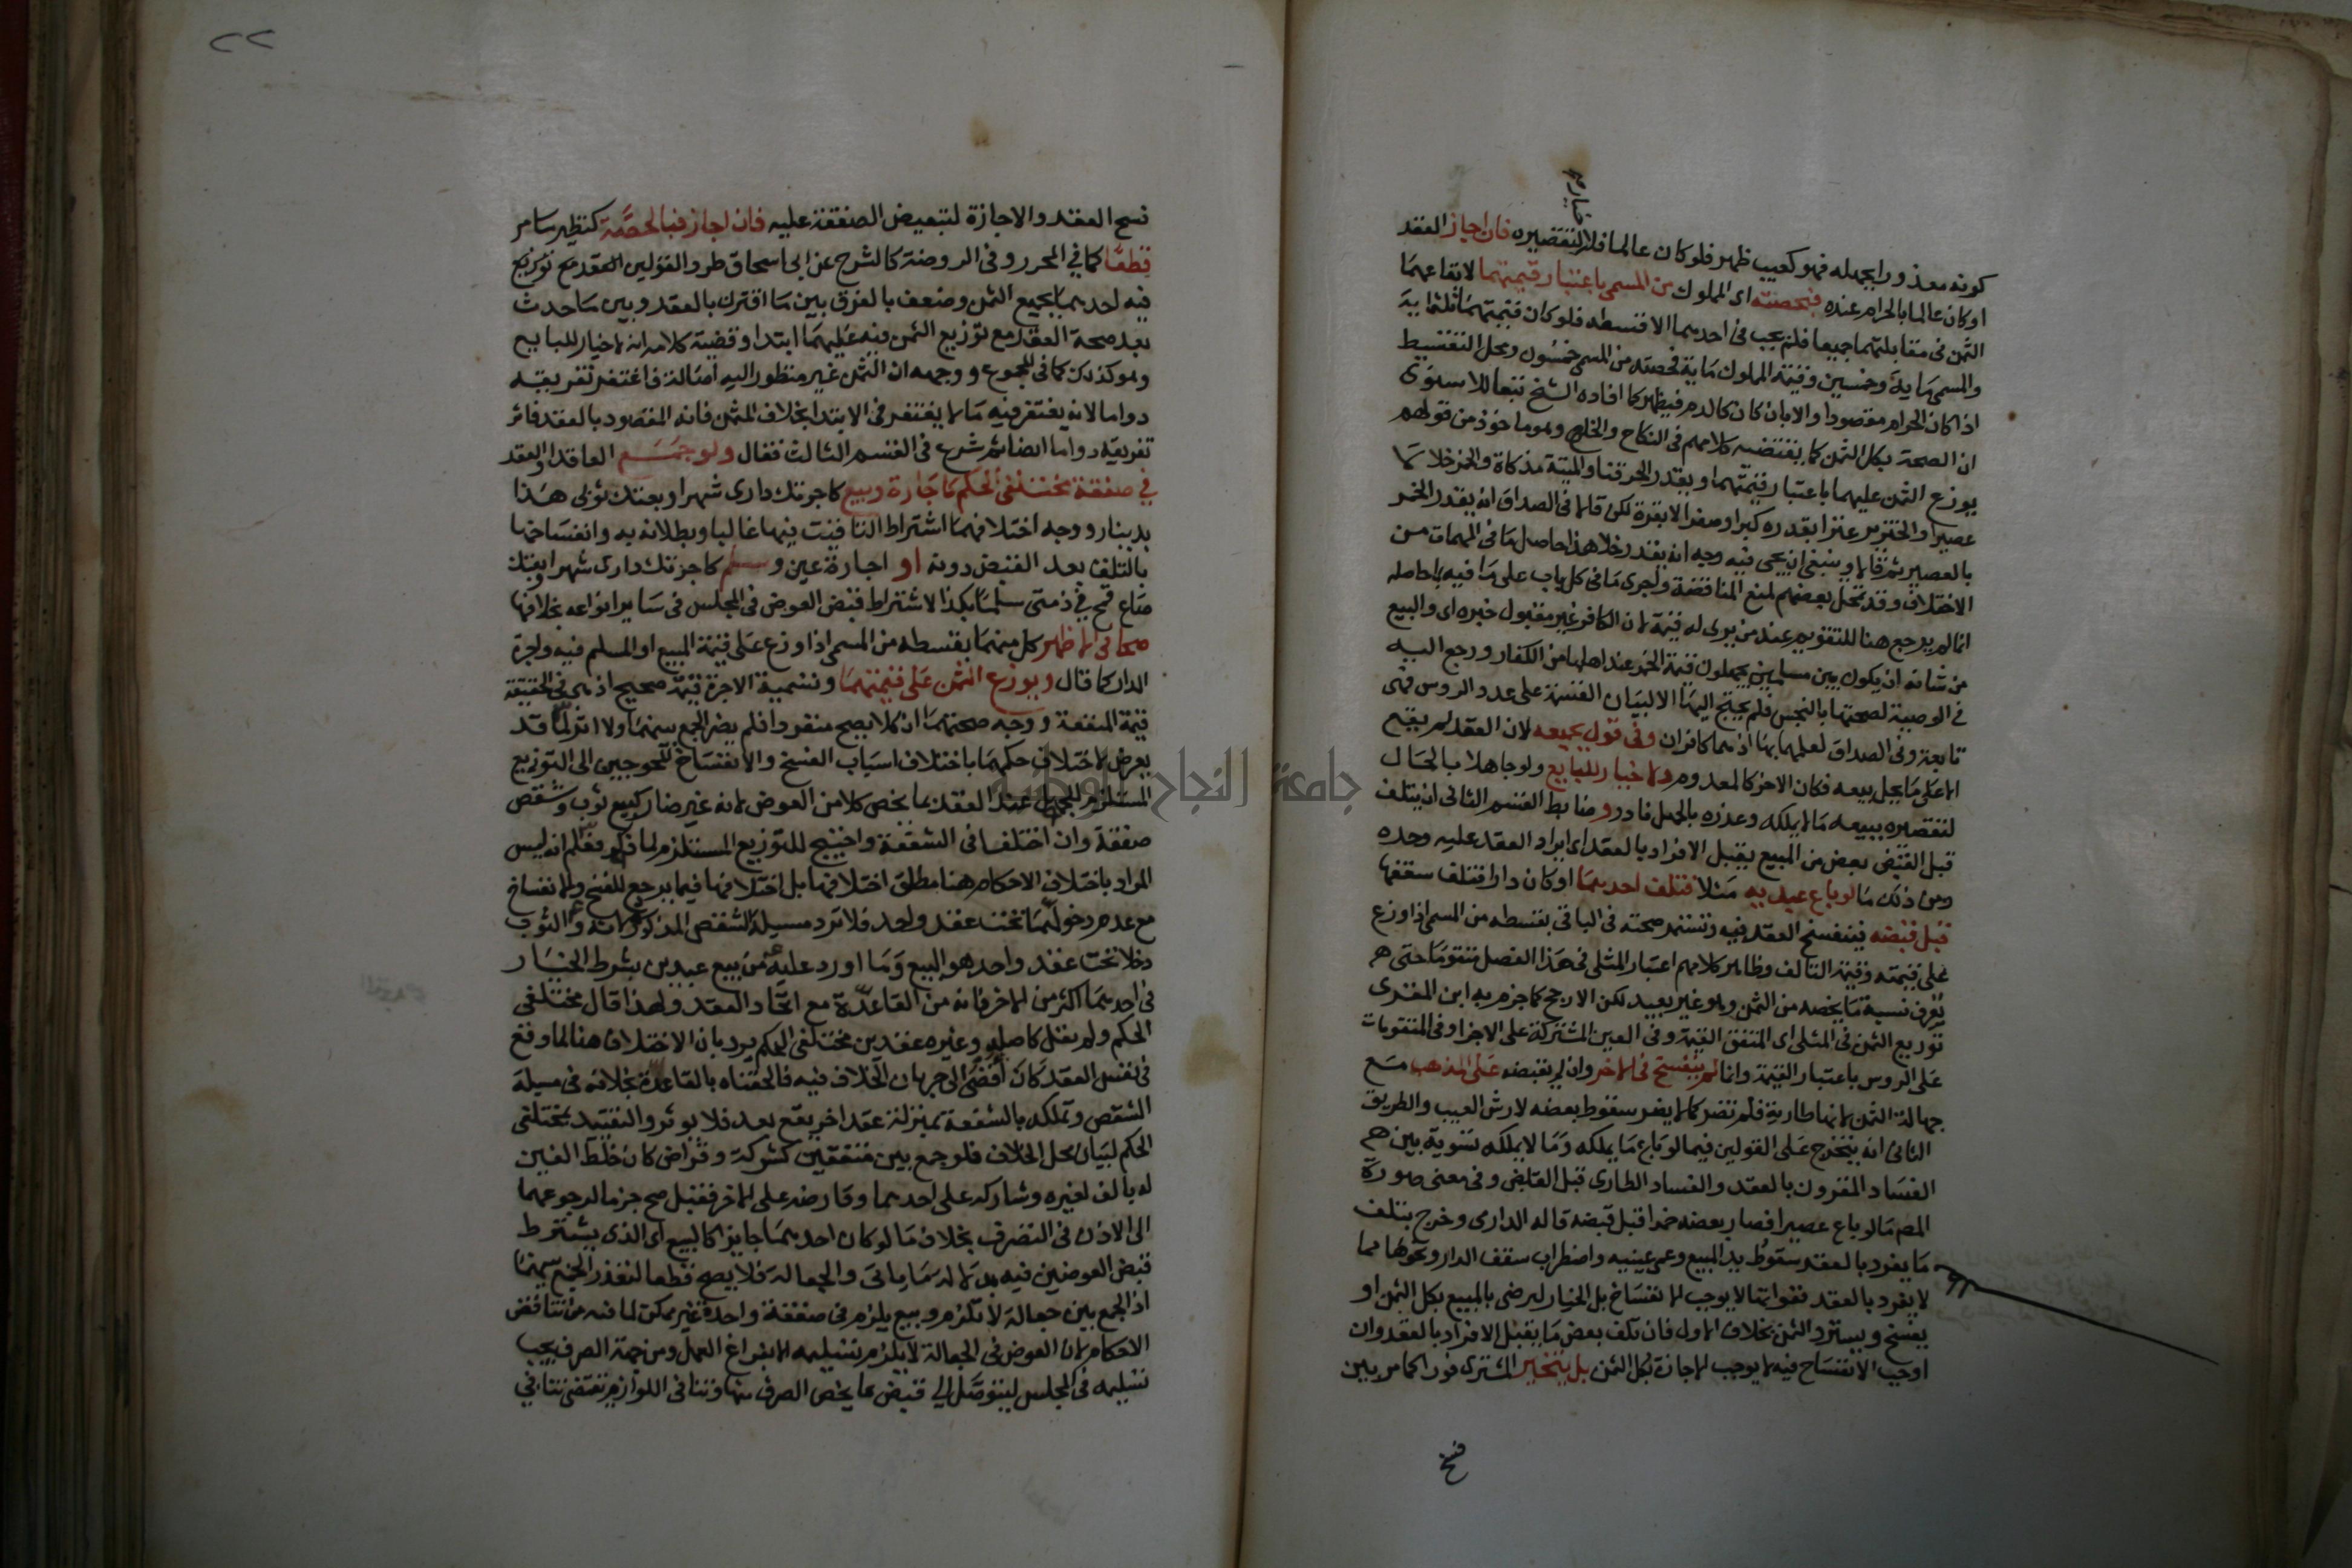 كونه معذورا بجهله فهو كعيب ظهر فلو كان عالما فلا خيار له لتقصيره فان اجاز العقد
او كان عالما بالحرام عنده فبحصته اى المملوك من المسمى باعتبار قيمتهما لايقاعهما
الثمن فى مقابلتهما جميعا فلم يجب فى احدهما الا قسطه فلو كان قيمتهما ثلثماية
والمسمى ماية وخمسين وقيمة المملوك ماية فحصته من المسمى خمسون ومحل التقسيط
اذا كان الحرام مقصودا والا بان كان كالدم فيظهر كما افاده الشيخ تبعا للاسنوى
ان الصحة بكل الثمن كما يقتضيه كلامهم فى النكاح والخلع وهو ماخوذ من قولهم
يوزع الثمن عليهما باعتبار قيمتهما ويقدر الحر قنا والميتة مذكاة والخمر خلا كما
عصيرا والخنزير عنزا بقدره كبرا وصغرا لا بقرة لكن قالا فى الصداق انه يقدر الخمر
بالعصير ثم قالا وينبغى ان يجى فيه وجه انه يقدر خلا هذا حاصل ما فى المهمات من
الاختلاف وقد تمحل بعضهم لمنع المناقضة واجرى ما فى كل باب على ما فيه بما حاصله
انما لم يرجع هنا للتقويم عند من يرى له قيمة لان الكافر غير مقبول خبره اى والبيع
من شانه ان يكون بين مسلمين يجهلون قيمة الخمر عند اهلها من الكفار ورجع اليه
فى الوصية لصحتها بالنجس فلم يحتج اليها الا لبيان القسمة على عدد الروس فهى
تابعة وفى الصداق لعلمهما بها اذ هما كافران وفى قول بجميعه لان العقد لم يقع
الا على ما يحل بيعه فكان الاخر كالمعدوم ولا خيار للبايع ولو جاهلا بالحال
لتقصيره ببيعه ما لا يملكه وعذره بالجهل نادر وضابط القسم الثانى ان يتلف
قبل القبض بعض من المبيع يقبل الافراد بالعقد اى ايراد العقد عليه وحده
ومن ذلك ما لو باع عبديه مثلا فتلف احدهما او كان دارا فتلف سقفها
قبل قبضه فينفسخ العقد فيه وتستمر صحته فى الباقى بقسطه من المسمى اذا وزع
على قيمته وقيمة التالف وظاهر كلامهم اعتبار المثلى فى هذا الفصل متقوما حتى
تعرف نسبة ما يخصه من الثمن وهو غير بعيد لكن الارجح كما جزم به ابن المقرى
توزيع الثمن فى المثلى اى المتفق القيمة وفى العين المشتركة على الاجزا وفى المتقومات
على الروس باعتبار القيمة وانما لم ينفسخ فى الاخر وان لم يقبضه على المذهب مع
جهالة الثمن لانها طارية فلم تضر كما لا يضر سقوط بعضه لارش العيب والطريق
الثانى انه يتخرج على القولين فيما لو باع ما يملكه وما لا يملكه تسوية بين
الفساد المقرون بالعقد والفساد الطارى قبل القبض وفى معنى صورة
المص ما لو باع عصيرا فصار بعضه خمرا قبل قبضه قاله الدارى وخرج بتلف
ما يفرد بالعقد سقوط يد المبيع وعمى عينيه واضطراب سقف الدار ونحوها مما
لا يفرد بالعقد ففواتها لا يوجب الانفساخ بل الخيار ليرضى بالمبيع بكل الثمن او
يفسخ ويسترد الثمن بخلاف الاول فان تلف بعض ما يقبل الافراد بالعقد وان
اوجب الانفساخ فيه لا يوجب الاجازة بكل الثمن بل يتخير المشترى فورا كما مر بين
فسخ
٢٢
فسخ العقد والاجازة لتبعيض الصفقة عليه فان اجاز فبالحصة كنظير ما مر
قطعا كما فى المحرر وفى الروضة كالشرح عن ابى اسحاق طرد القولين العقد مع توزيع
فيه احدهما بجميع الثمن وضعف بالفرق بين ما اقترن بالعقد وبين ما حدث
بعد صحة العقد مع توزيع الثمن فيه عليهما ابتدا وقضية كلامه ان لا خيار للبايع
وهو كذلك كما فى المجموع ووجهه ان الثمن غير منظور اليه اصالة فاغتفر تفريقه
دواما لانه يغتفر فيه ما لا يغتفر فى الابتدا بخلاف المثمن فانه المقصود بالعقد فاثر
تفريقه دواما ايضا ثم شرع فى القسم الثالث فقال ولو جمع العاقد او العقد
فى صفقة مختلفى الحكم كاجارة وبيع كاجرتك دارى شهرا وبعتك ثوبى هذا
بدينار ووجه اختلافهما اشتراط التاقيت فيها غالبا وبطلانه به وانفساخها
بالتلف بعد القبض دونه او اجارة عين وسلم كاجرتك دارى شهرا وبعتك
صاع قمح فى ذمتى سلما بكذا لاشتراط قبض العوض فى المجلس فى ساير انواعه بخلافها
صحا فى الاظهر كل منهما بقسطه من المسمى اذا وزع على قيمة المبيع او المسلم فيه واجرة
الدار كما قال ويوزع الثمن على قيمتهما وتسمية الاجرة قيمة صحيح اذ هى فى الحقيقة
قيمة المنفعة ووجه صحتهما ان كلا يصح منفردا فلم يضر الجمع بينهما ولا اثر لما قد
يعرض لاختلاف حكمهما باختلاف اسباب الفسخ والانفساخ المحوجين الى التوزيع
المستلزم للجهل عند العقد بما يخص كلا من العوض لانه غير ضار كبيع ثوب وشقص
صفقة وان اختلفا فى الشفعة واحتيج للتوزيع المستلزم لما ذكر فعلم انه ليس
المراد باختلاف الاحكام هنا مطلق اختلافها بل اختلافها فيما يرجع للفسخ والانفساخ
مع عدم دخولهما تحت عقد واحد فلا ترد مسيلة الشقص المذكورة لانه والثوب
دخلا تحت عقد واحد هو البيع وما اورد عليه من بيع عبدين بشرط الخيار
فى احدهما اكثر من الاخر فانه من القاعدة مع اتحاد العقد ولهذا قال مختلفى
الحكم ولم يقل كاصله وغيره عقدين مختلفى الحكم يرد بان الاختلاف هنا لما وقع
فى نفس العقد كان افضى الى جريان الخلاف فيه فالحقناه بالقاعدة بخلافه فى مسيلة
الشقص وتملكه بالشفعة بمنزلة عقد اخر يقع بعد فلا يوثر والتقييد بمختلفى
الحكم لبيان محل الخلاف فلو جمع بين متفقين كشركة وقراض كان خلط الفين
له بالف لغيره وشاركه على احدهما وقارضه على الاخر فقبل صح جزما لرجوعهما
الى الاذن فى التصرف بخلاف ما لو كان احدهما جايزا كالبيع اى الذى يشترط
قبض العوضين فيه والجعالة فلا يصح قطعا لتعذر الجمع بينهما
اذ الجمع بين جعالة لا تلزم وبيع يلزم فى صفقة واحدة غير ممكن لما فيه من تناقض
الاحكام لان العوض فى الجعالة لا يلزم تسليمه الا بفراغ العمل ومن جهة الصرف يجب
تسليمه فى المجلس ليتوصل الى قبض ما يخص الصرف منها وتنافى اللوازم يقتضى تنافى
جامعة النجاح الوطنية